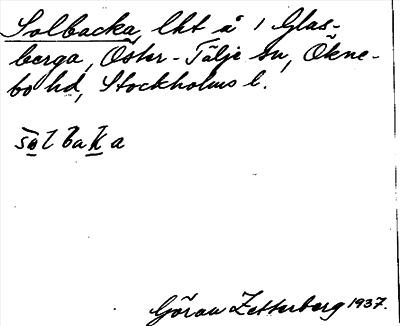 Solbacka, lht å 1 Glas-
berga, Öster-Tälje sn,Ökne-
bo hd, Stockholms l.
sol̄baka
Göran Zetterberg 1937.